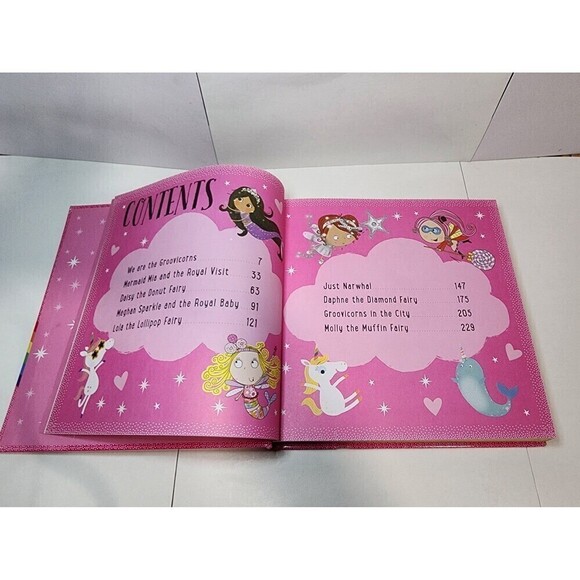 CONTENTS
We are the Groovicorns 7
Mermaid Mia and the Royal Visit 33
Daisy the Donut Fairy 63
Meghan Sparkle and the Royal Baby 91
Lola the Lollipop Fairy 121
Just Narwhal 147
Daphne the Diamond Fairy 175
Groovicorns in the City 205
Molly the Muffin Fairy 229